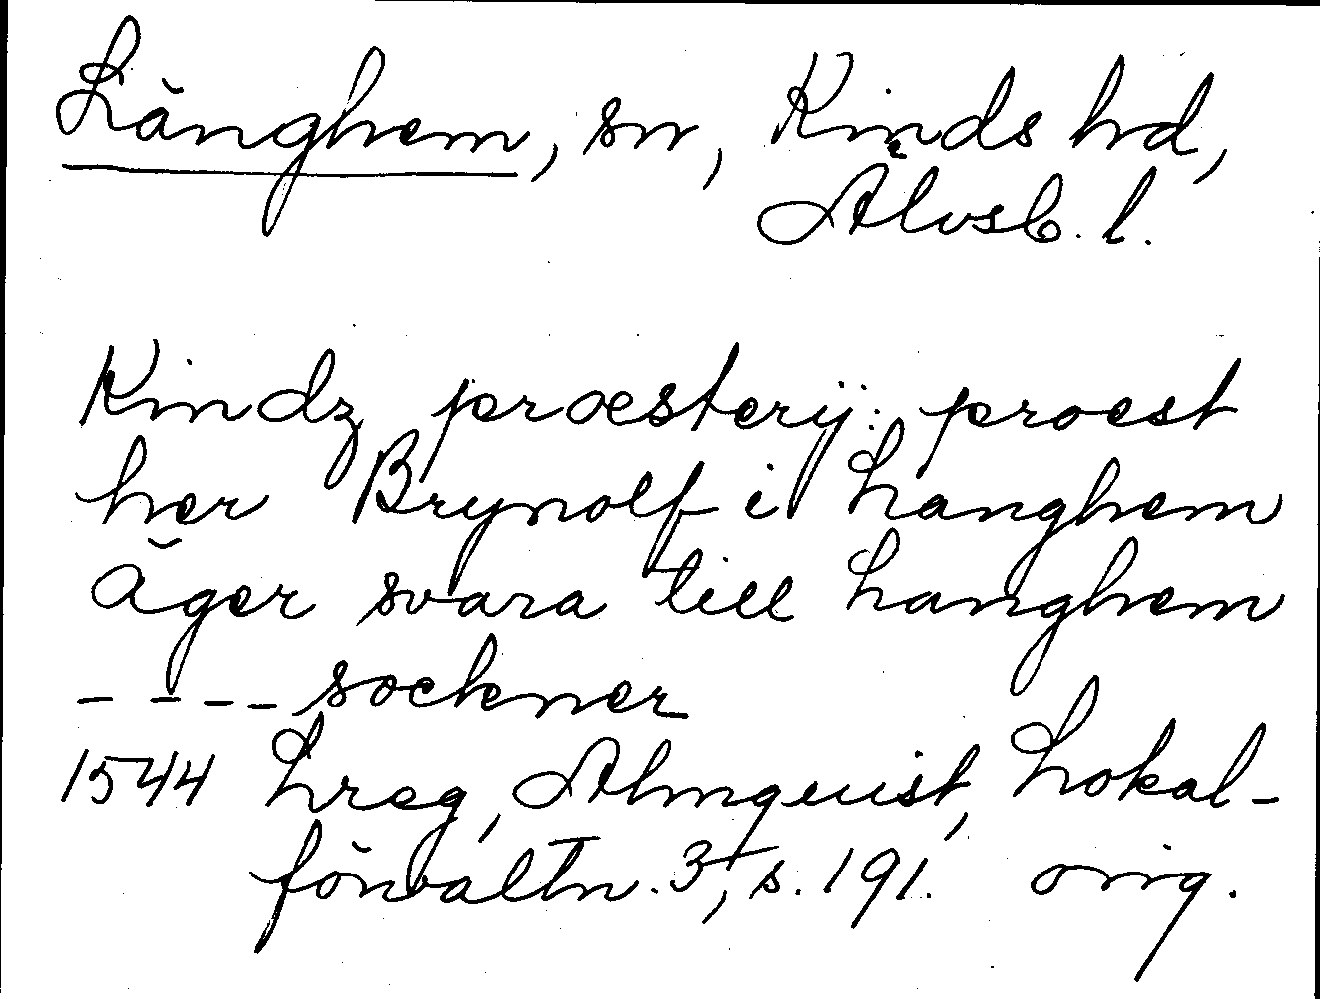 Länghem, sn, Kinds hd,
Älvsb. l.
Kindz præsterij: proest
her Brynolf i Langhem
äger svara till Langhem
_ _ _ _ sockner
1544 Lreg, Almquist, Lokal-
förvaltn. 3, s. 191. orig.